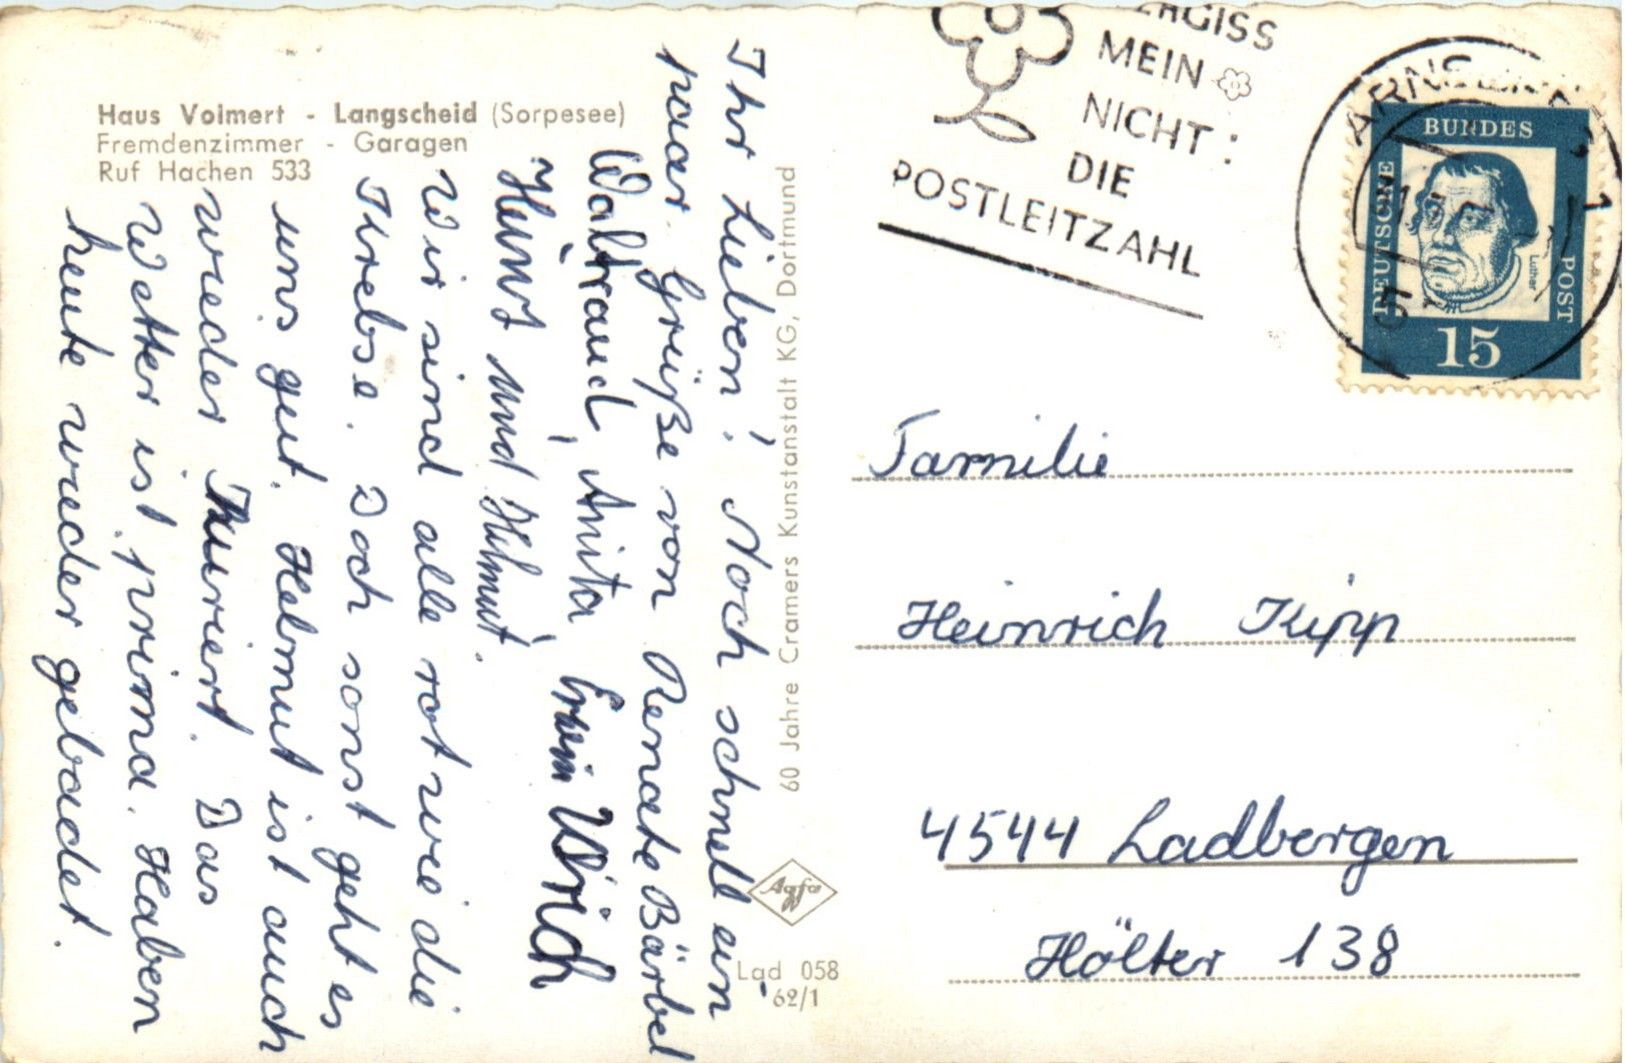 Haus Volmert - Langscheid (Sorpesee)
Fremdenzimmer - Garagen
Ruf Hachen 533
Ihr Lieben! Noch schnell ein
paar Grüße von Renate Bärbel
Waltraud, Anita, Erwin Ulrich
Heinz und Helmut.
Wir sind alle rot wie die
Krebse. Doch sonst geht es
uns gut. Helmut ist auch
wieder kuriert. Das
Wetter ist prima. Haben
heute wieder gebadet.
60 Jahre Cramers Kunstanstalt KG, Dortmund
Agfa
Lad 058
62/1
MEIN
NICHT:
DIE
POSTLEITZAHL
DEUTSCHE
BUNDES
POST
Luther
15
Familie
Heinrich Kipp
4544 Ladbergen
Hölter 138